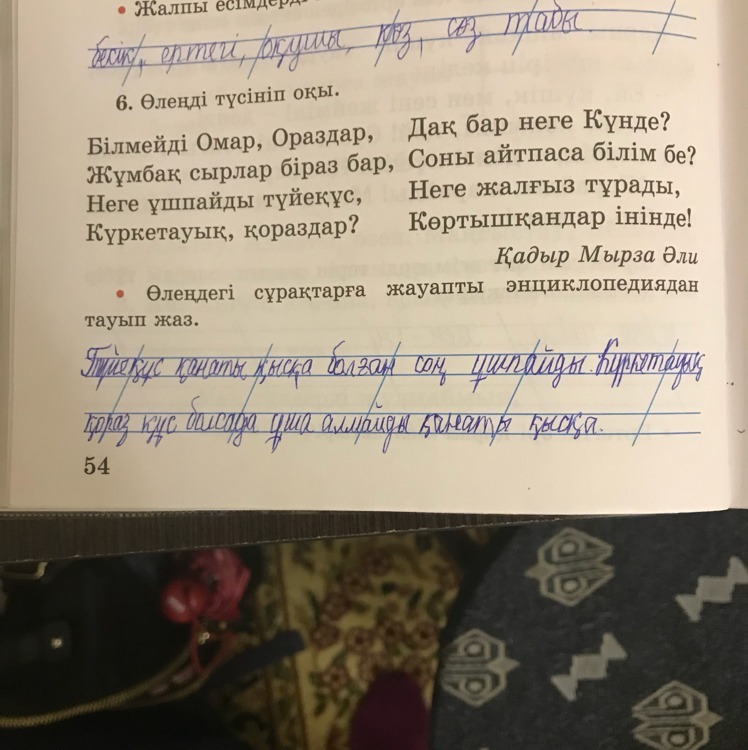 • Жалпы есімдерді
бесік, ертегі, оқушы, қыз, сөз, табы
6. Өлеңді түсініп оқы.
Білмейді Омар, Ораздар,
Жұмбақ сырлар біраз бар,
Неге ұшпайды түйеқұс,
Күркетауық, қораздар?
Дақ бар неге Күнде?
Соны айтпаса білім бе?
Неге жалғыз тұрады,
Көртышқандар інінде!
Қадыр Мырза Әли
• Өлеңдегі сұрақтарға жауапты энциклопедиядан
тауып жаз.
Түйеқұс қанаты қысқа болған соң ұшпайды. Күркетауық
қораз құс болсада ұша алмайды қанаты қысқа.
54